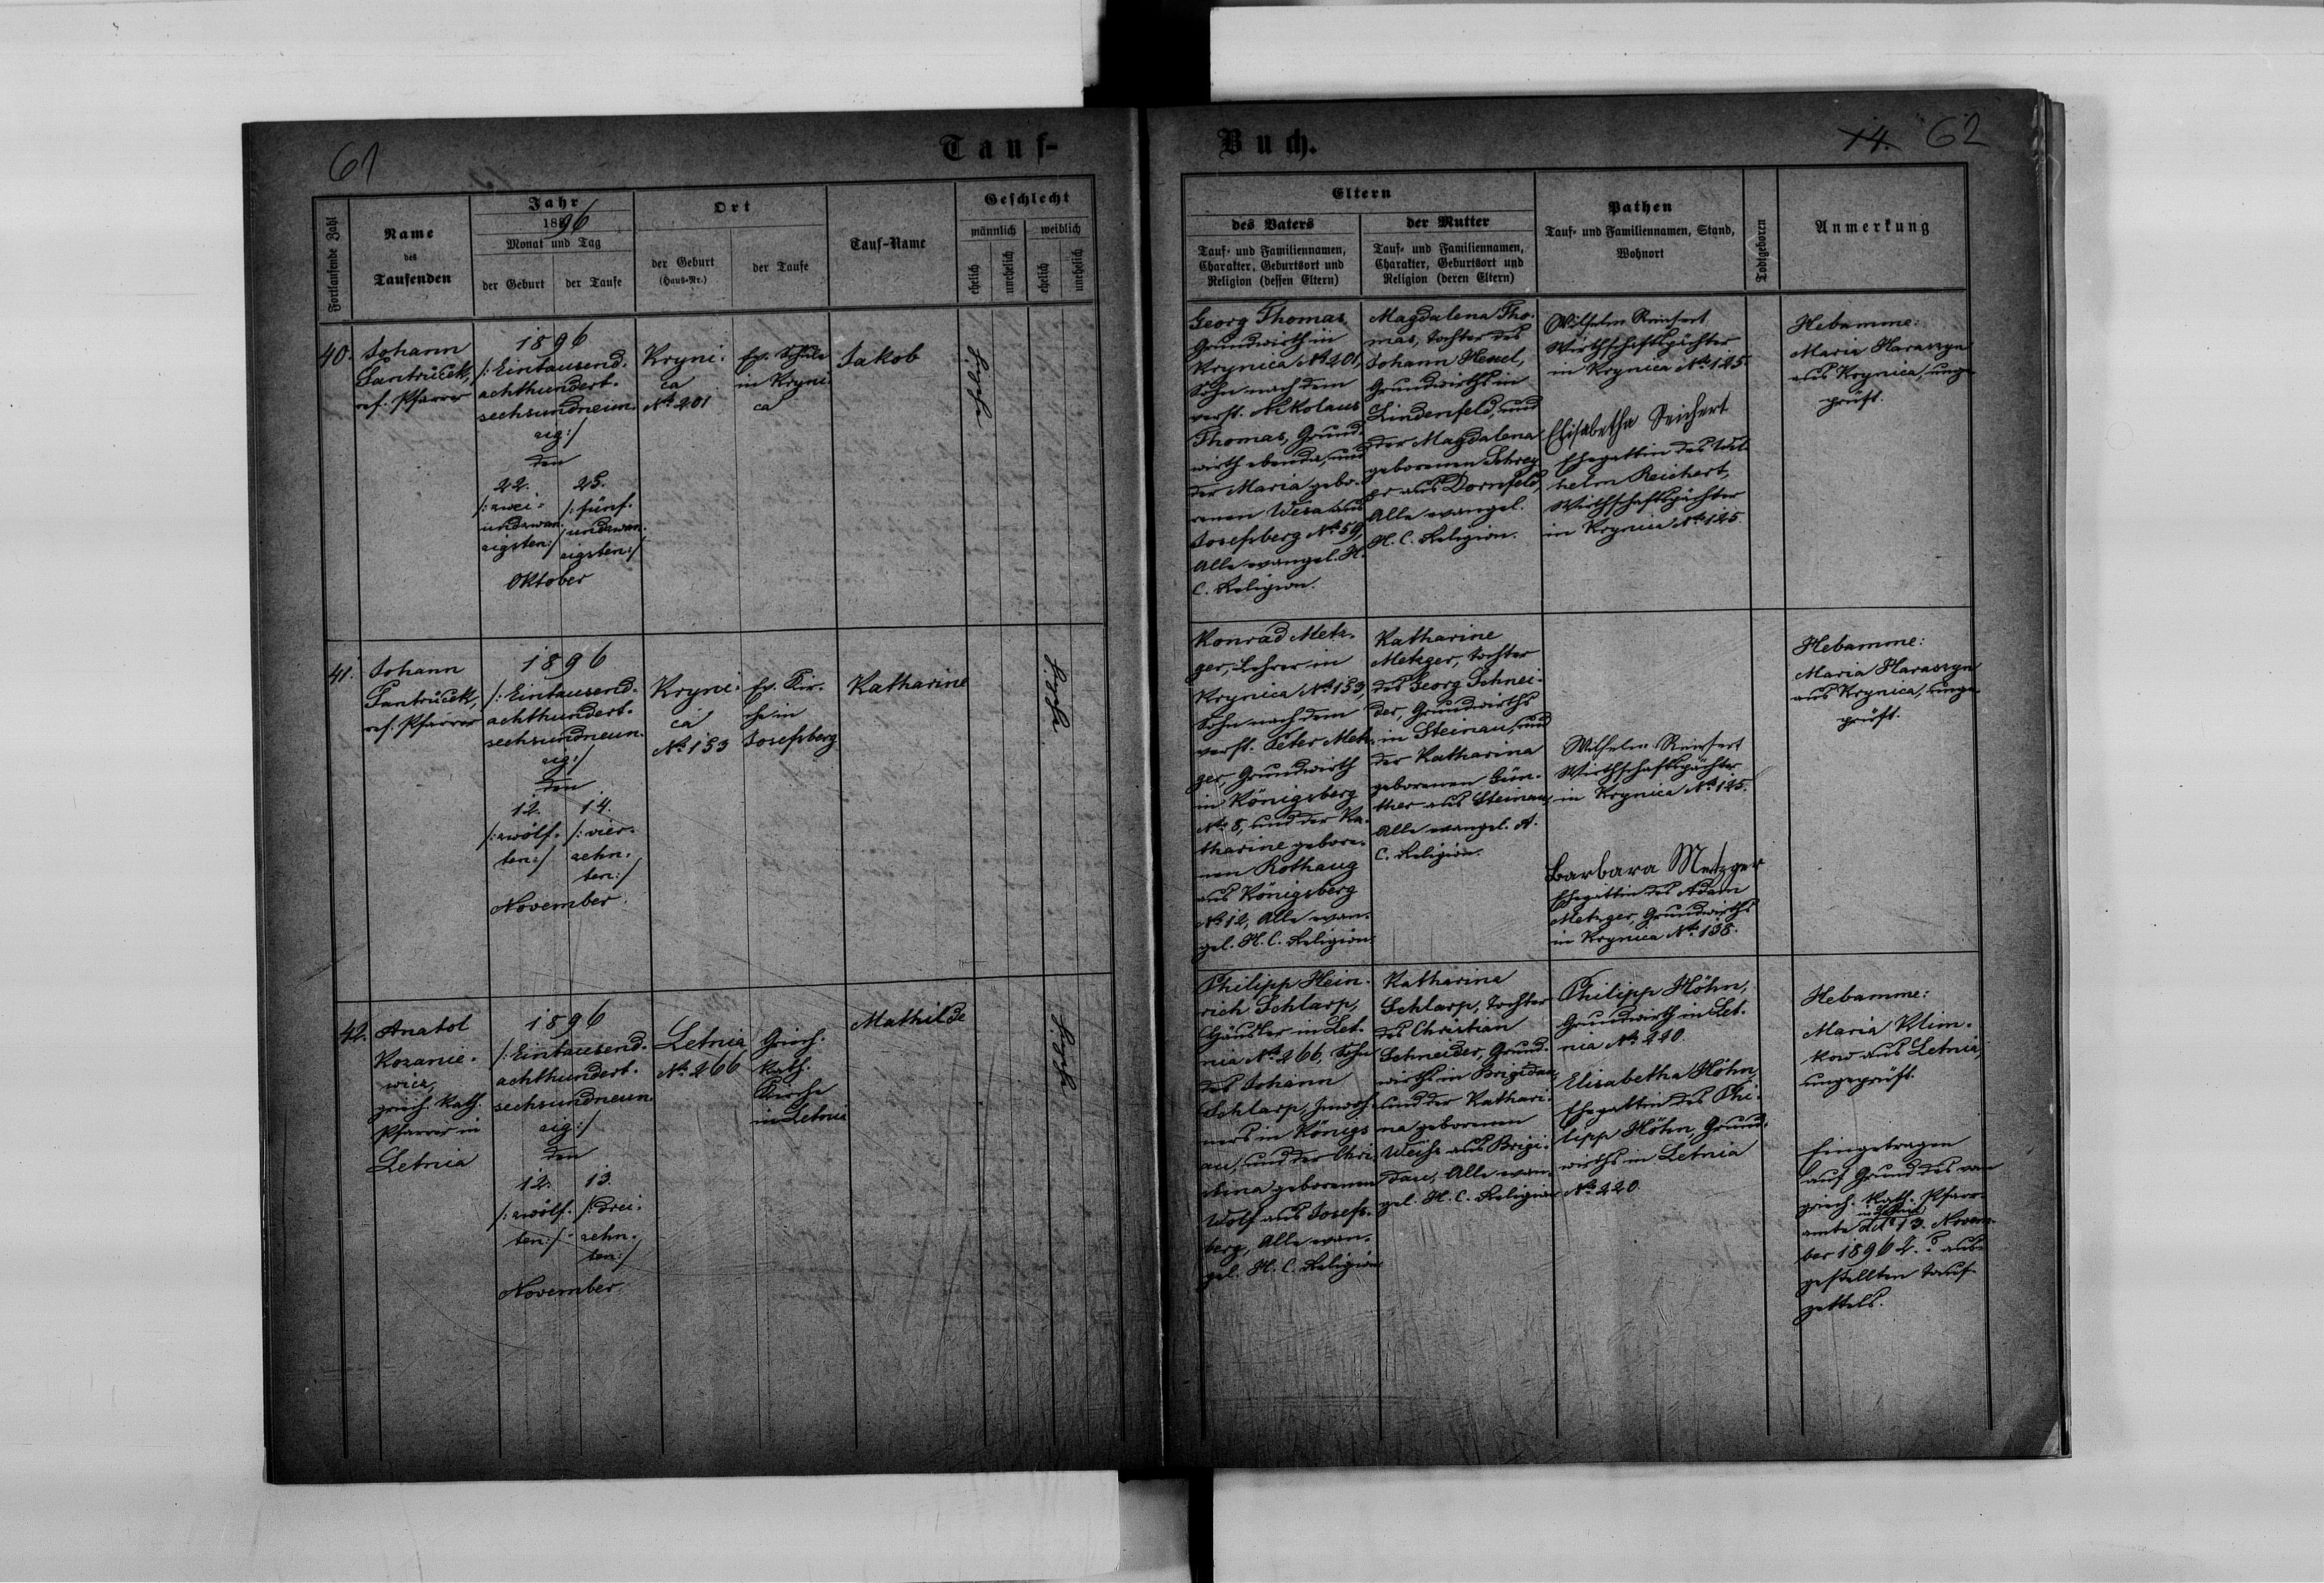 61
Tauf-
Fortlaufende Zahl
Name
des
Taufenden
Jahr
1896
Monat und Tag
der Geburt
der Taufe
Ort
der Geburt
(Haus-Nr.)
der Taufe
Tauf-Name
Geschlecht
männlich
weiblich
ehelich
unehelich
ehelich
unehelich
40.
Johann
Pantrůček,
ref. Pfarrer
1896
/:Eintausend-
achthundert-
sechsundneun-
zig:/
den
22.
/:zwei-
undzwan-
zigsten:/
25.
/:fünf-
undzwan-
zigsten:/
Oktober
Kryni-
ca
No 201
Ev. Schule
in Kryni-
ca
Jakob
ehelich
41.
Johann
Pantrůček,
ref. Pfarrer
1896
/:Eintausend-
achthundert-
sechsundneun-
zig:/
den
12.
/:zwölf-
ten:/
14.
/:vier-
zehn-
ten:/
November
Kryni-
ca
No 153
Ev. Kir-
che in
Josefsberg
Katharine
ehelich
42.
Anatol
Kozanie-
wicz,
griech. Kath.
Pfarrer in
Letnia
1896
/:Eintausend-
achthundert-
sechsundneun-
zig:/
den
12.
/:zwölf-
ten:/
13.
/:drei-
zehn-
ten:/
November
Letnia
No 266
Griech.
Kath.
Kirche
in Letnia
Mathilde
ehelich
Buch.
14. 62
Eltern
des Vaters
Tauf- und Familiennamen,
Charakter, Geburtsort und
Religion (dessen Eltern)
der Mutter
Tauf- und Familiennamen,
Charakter, Geburtsort und
Religion (deren Eltern)
Pathen
Tauf- und Familiennamen, Stand,
Wohnort
Todtgeboren
Anmerkung
Georg Thomas,
Grundwirth in
Krynica No 201,
Sohn nach dem
verst. Nikolaus
Thomas, Grund-
wirth ebenda, und
der Maria gebo-
renen Wesa aus
Josefsberg No 59,
Alle evangel. H.
C. Religion.
Magdalena Tho-
mas, Tochter des
Johann Hexel,
Grundwirths in
Lindenfeld, und
der Magdalena
geborenen Schrey-
er aus Dornfeld,
Alle evangel.
H. C. Religion.
Wilhelm Reichert
Wirthschaftspächter
in Krynica No 125.
Elisabetha Reichert
Ehegattin des Wil-
helm Reichert,
Wirthschaftspächter
in Krynica No 125.
Hebamme:
Maria Haraszyn
aus Krynica, unge-
prüft.
Konrad Metz-
ger, Lehrer in
Krynica No 153,
Sohn nach dem
verst. Peter Metz-
ger Grundwirth
in Königsberg
No 8, und der Ka-
tharine gebore-
nen Rothaug
aus Königsberg
No 12, Alle evan-
gel. H. C. Religion.
Katharine
Metzger, Tochter
des Georg Schnei-
der, Grundwirths
in Steinau, und
der Katharina
geborenen Gün-
ther aus Steinau,
Alle evangel. A.
C. Religion.
Wilhelm Reichert
Wirthschaftspächter
in Krynica No 125.
Barbara Metzger
Ehegattin des Adam
Metzger, Grundwirths
in Krynica No 138.
Hebamme:
Maria Haraszyn
aus Krynica, unge-
prüft.
Philipp Hein-
rich Schlarp,
Häusler in Let-
nia No 266, Sohn
des Johann
Schlarp, Inwoh-
ners in Königs-
au, und der Chri-
stina geborenen
Wolf aus Josefs-
berg, Alle evan-
gel. H. C. Religion.
Katharina
Schlarp, Tochter
des Christian
Schneider, Grund-
wirths in Brigidau,
und der Kathari-
na geborenen
Weiss aus Brigi-
dau, Alle evan-
gel. H. C. Religion
Philipp Höhn,
Grundwirth in Let-
nia No 220.
Elisabetha Höhn,
Ehegattin des Phi-
lipp Höhn, Grund-
wirths in Letnia
No 220.
Hebamme:
Maria Klim-
kow aus Letnia,
ungeprüft.
Eingetragen
auf Grund des vom
griech. Kath. Pfarr-
amte in Letnia ddto 13. Novem-
ber 1896 aus-
gestellten Tauf-
zettels.